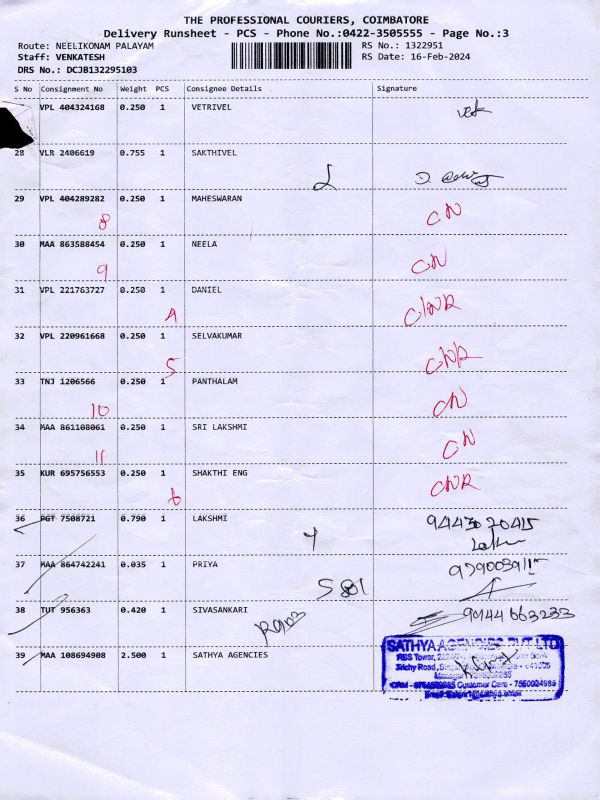 THE PROFESSIONAL COURIERS, COIMBATORE
Delivery Runsheet - PCS - Phone No.:0422-3505555 - Page No.:3
Route: NEELIKONAM PALAYAM RS No.: 1322951
Staff: VENKATESH RS Date: 16-Feb-2024
DRS No.: DCJB132295103
S No Consignment No Weight PCS Consignee Details Signature
VPL 404324168 0.250 1 VETRIVEL
28 VLR 2406619 0.755 1 SAKTHIVEL
29 VPL 404289282 0.250 1 MAHESWARAN CN
8
30 MAA 863588454 0.250 1 NEELA CN
9
31 VPL 221763727 0.250 1 DANIEL CNR
4
32 VPL 220961668 0.250 1 SELVAKUMAR CNR
5
33 TNJ 1206566 0.250 1 PANTHALAM CN
10
34 MAA 861108061 0.250 1 SRI LAKSHMI CN
11
35 KUR 695756553 0.250 1 SHAKTHI ENG CNR
6
36 PGT 7508721 0.790 1 LAKSHMI
37 MAA 864742241 0.035 1 PRIYA
38 TUT 956363 0.420 1 SIVASANKARI 90144 663233
39 MAA 108694908 2.500 1 SATHYA AGENCIES
SATHYA AGENCIES PVT LTD
RBS Tower,
Trichy Road,
Customer Care - 7550024985